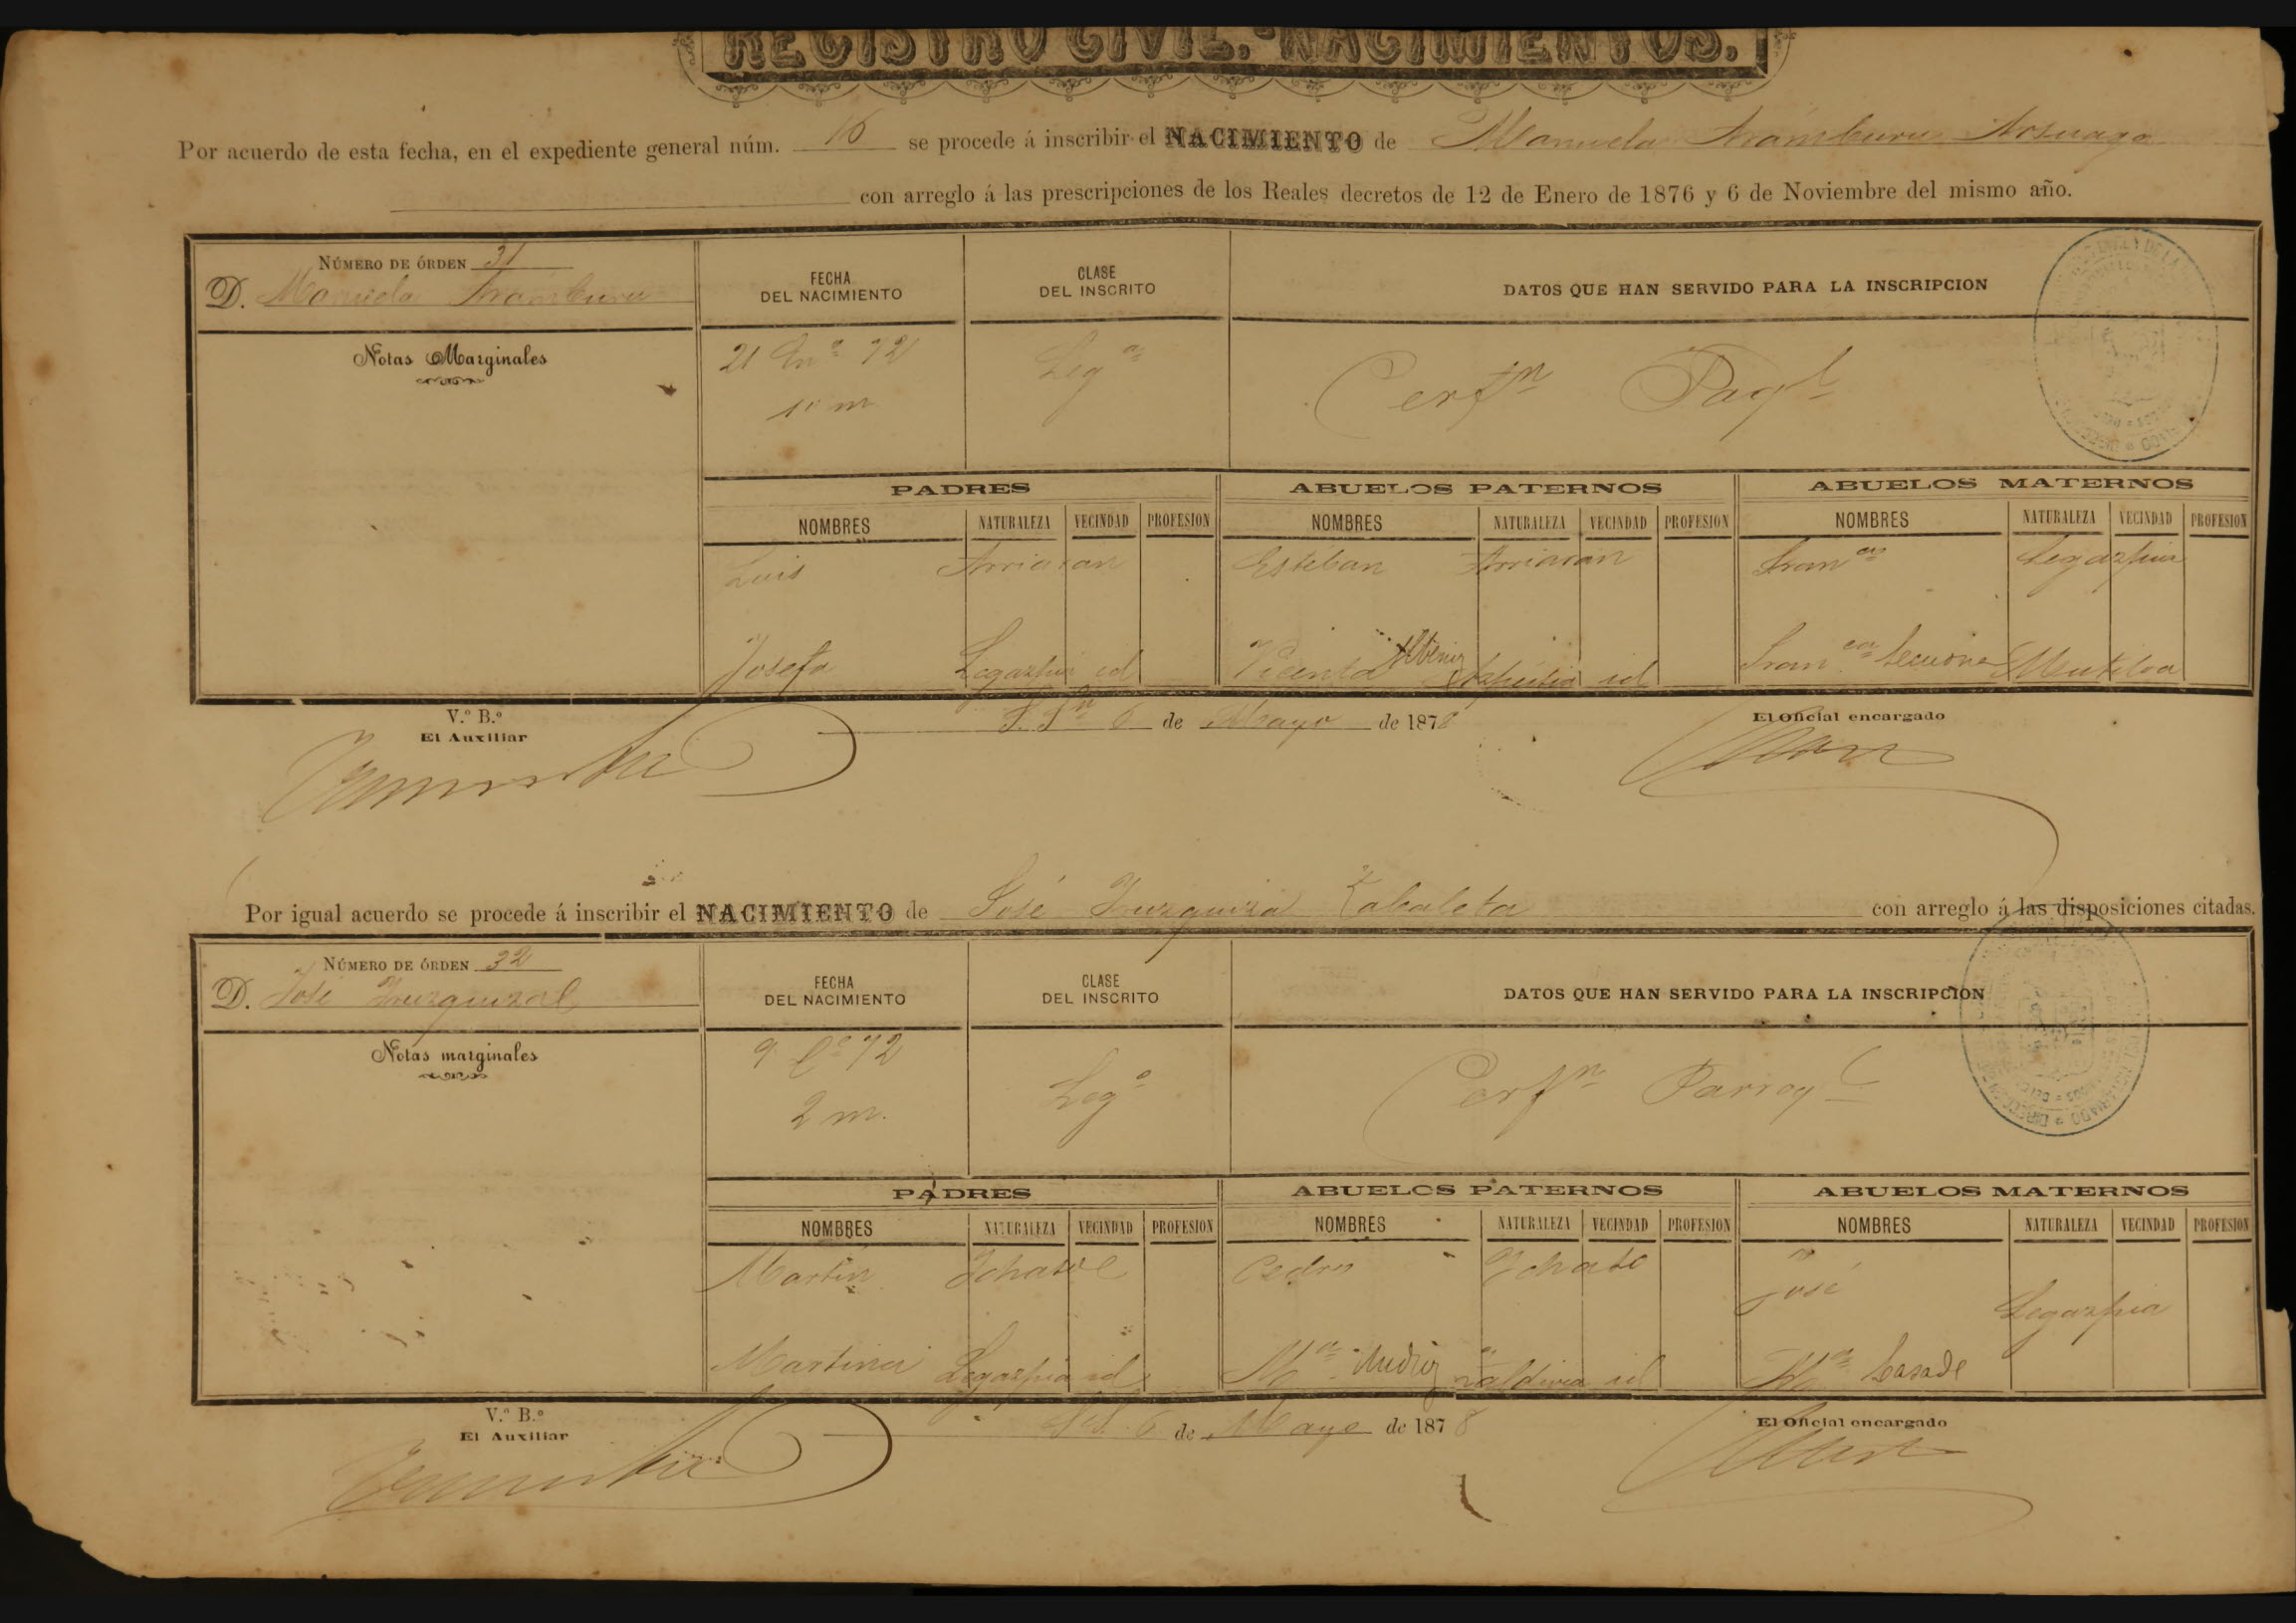 REGISTRO CIVIL.-NACIMIENTOS.
Por acuerdo de esta fecha, en el expediente general núm. 16 se procede á inscribir el NACIMIENTO de Manuela Aramburu Arsuaga
con arreglo á las prescripciones de los Reales decretos de 12 de Enero de 1876 y 6 de Noviembre del mismo año.
NÚMERO DE ÓRDEN 31
D. Manuela Aramburu
FECHA DEL NACIMIENTO
CLASE DEL INSCRITO
DATOS QUE HAN SERVIDO PARA LA INSCRIPCION
Notas Marginales
21 En.º 72
m
Leg.a
Cerf.n
PADRES ABUELOS PATERNOS ABUELOS MATERNOS
NOMBRES NATURALEZA VECINDAD PROFESION NOMBRES NATURALEZA VECINDAD PROFESION NOMBRES NATURALEZA VECINDAD PROFESION
Luis Arriaran Esteban Arriaran Fran.co Legazpia
Josefa Legazpia id Vicenta Albeniz id Fran.ca Mutiloa
V.º B.º
El Auxiliar
6 de Mayo de 1878
El Oficial encargado
Por igual acuerdo se procede á inscribir el NACIMIENTO de José Yurquiza Zabaleta con arreglo á las disposiciones citadas.
NÚMERO DE ÓRDEN 32
D. José
FECHA DEL NACIMIENTO
CLASE DEL INSCRITO
DATOS QUE HAN SERVIDO PARA LA INSCRIPCION
Notas marginales
9 72
2 m.
Leg.º
Cerf.n Parroq.l
PADRES ABUELOS PATERNOS ABUELOS MATERNOS
NOMBRES NATURALEZA VECINDAD PROFESION NOMBRES NATURALEZA VECINDAD PROFESION NOMBRES NATURALEZA VECINDAD PROFESION
Martin Pedro José Legazpia
Martina Legazpia id M.a Zaldivia id M.a
V.º B.º
El Auxiliar
6 de Mayo de 1878
El Oficial encargado